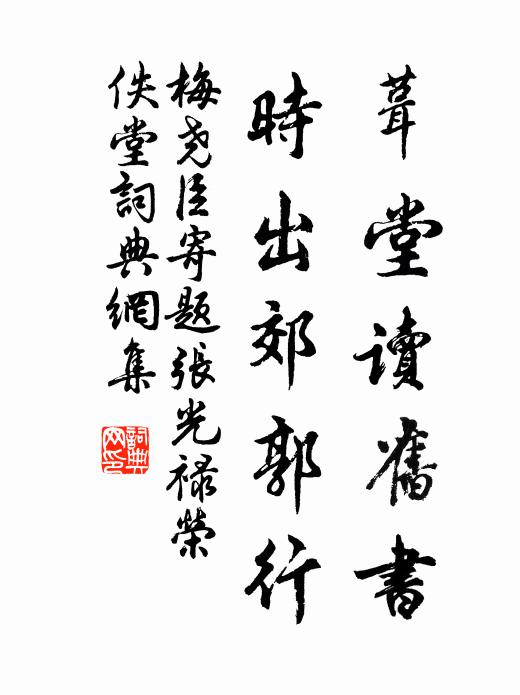 葺堂讀舊書
時出郊郭行
梅尧臣寄题張光禄榮
佚堂詞典網集
詞典
网印